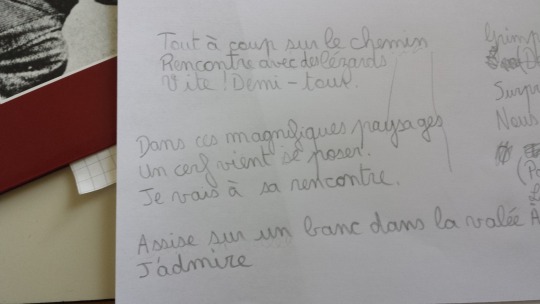 Tout à coup sur le chemin
Rencontre avec des lézards
Vite ! Demi-tour.
Dans ces magnifiques paysages
Un cerf vient se poser.
Je vais à sa rencontre.
Assise sur un banc dans la valée
J'admire
Surpr
Nous